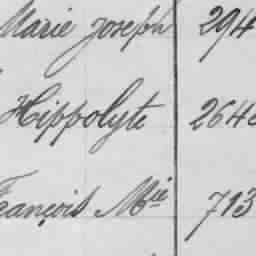 Marie Joseph 294
Hippolyte 264
François M^ie 713